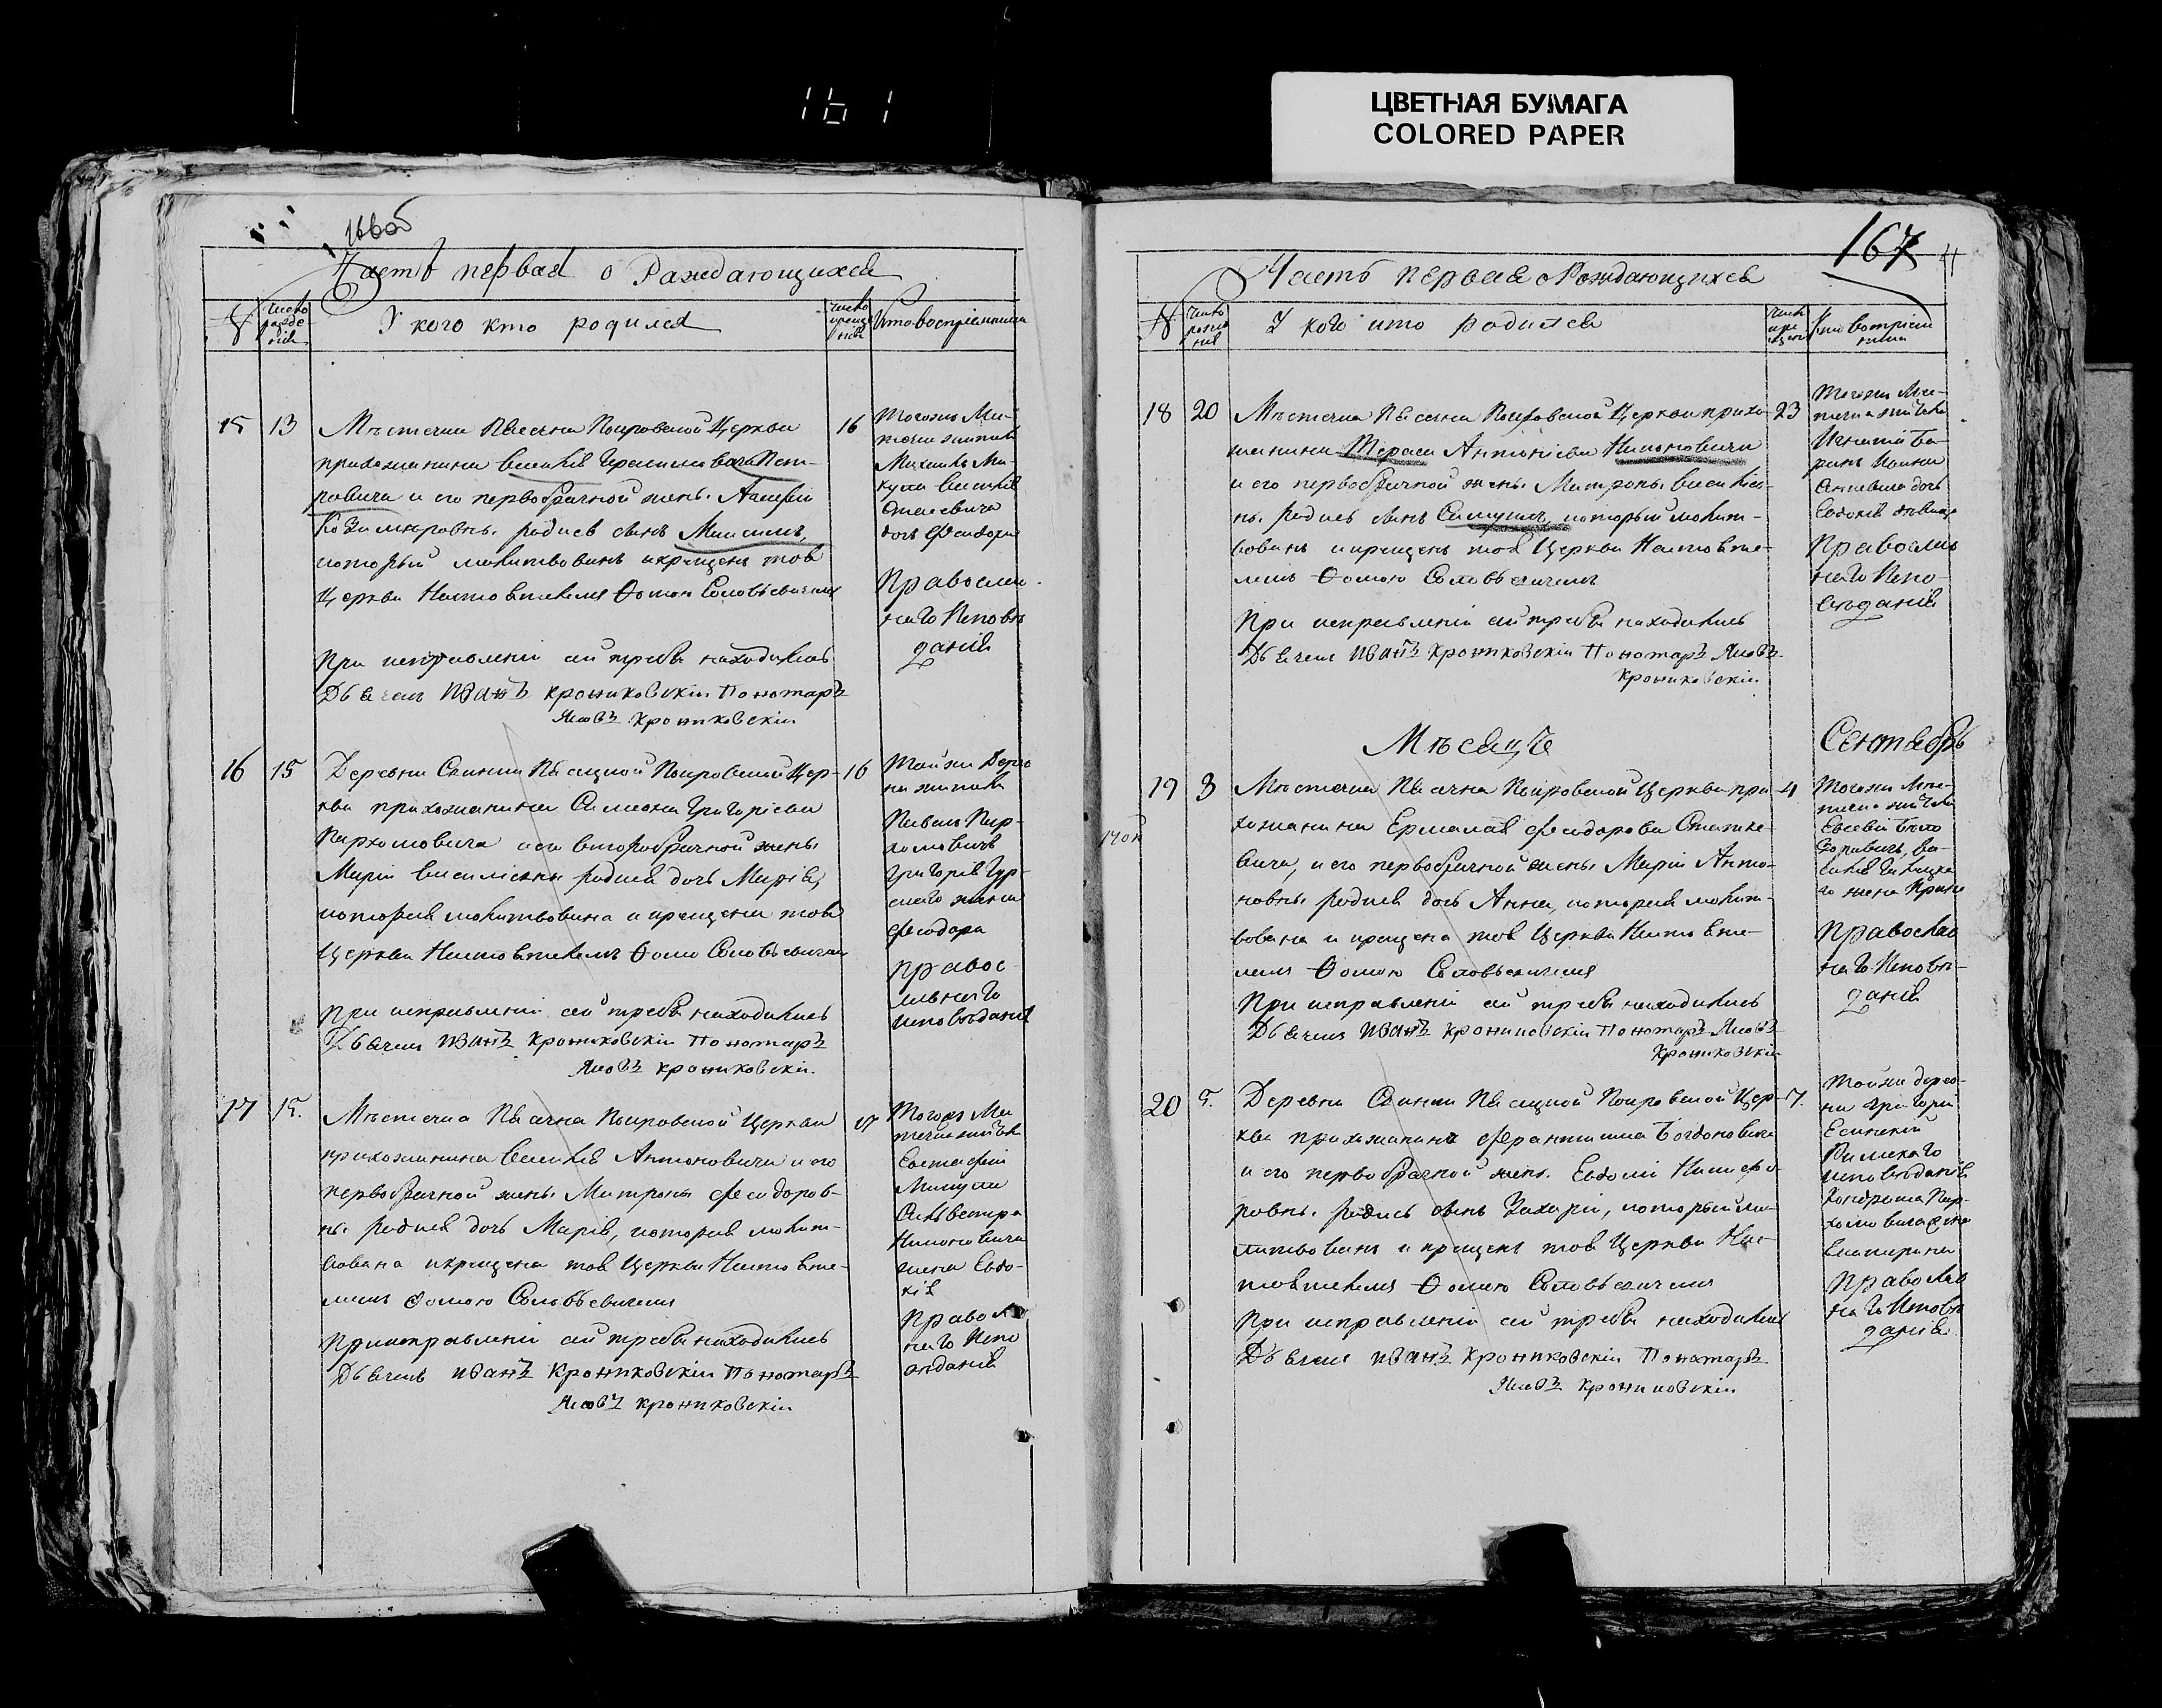 161
ЦВЕТНАЯ БУМАГА
COLORED PAPER
166об
Часть первая о Раждающихся
№
Число рожде нія
У кого кто родился
Число креще нія
Кто воспріемники
15 13
Мѣстечка Пѣсочна Покровской Церкви
прихожанина Василія Герасимова Пет-
ровича и его первобрачной жены
Казимировны родися сынъ Максимъ,
который молитвованъ и крещенъ тоя
Церкви Настоятелемъ Ѳомою Соловьевичемъ
При исправленіи сей требы находились
Дьячекъ Иванъ Крониковскій Пономарь
Яковъ Крониковскій
16
Тогожъ Мѣ-
стечка житель
Михаилъ Ми-
кула Василія
дочь Феодора
Православ-
наго Исповѣ
данія
16 15
Деревни Свинки Пѣсоцкой Покровской Цер-
кви прихожанина Симеона Григоріева
Пархомовича и его второбрачной жены
Маріи Василіевны родися дочь Марія,
которая молитвована и крещена тоя
Церкви Настоятелемъ Ѳомою Соловьевичемъ
При исправленіи сей требы находились
Дьячекъ Иванъ Крониковскій Пономарь
Яковъ Крониковскій.
16
Тойже Дерев
ни житель
Павелъ Пар-
хомовичъ
Григорія Гур-
скаго жена
Феодора
Правос-
лавнаго
исповѣданія
17 15.
Мѣстечка Пѣсочна Покровской Церкви
прихожанина Василія Антоновича и его
первобрачной жены Матроны Феодоров-
ны родися дочь Марія, которая молит-
вована и крещена тоя Церкви Настояте-
лемъ Ѳомою Соловьевичемъ
При исправленіи сей требы находились
Дьячекъ Иванъ Крониковскій Пономарь
Яковъ Крониковскій
17
Тогожъ Мѣ
стечка житель
Евстафій
Микула
Сильвестра
Никоновича
жена Евдо-
кія
Правосла
наго Испо
вѣданія
167
Часть первая о Рождающихся
№
Число рожде нія
У кого кто родился
Число кре щенія
Кто воспріем ники
18 20
Мѣстечка Пѣсочна Покровской Церкви прихо-
жанина Тараса Антоніева Никоновича
и его первобрачной жены Матроны Василіев-
ны родися сынъ Самуилъ, который молит-
вованъ и крещенъ тоя Церкви Настояте-
лемъ Ѳомою Соловьевичемъ
При исправленіи сей требы находились
Дьячекъ Иванъ Крониковскій Пономарь Яковъ
Крониковскій
23
Тогожъ Мѣс-
течка житель
Игнатій Ба-
дочь
Евдокія дѣвица
Православ
наго Испо-
вѣданія
Мѣсяцъ Сентябрь
19 3
140й
Мѣстечка Пѣсочна Покровской Церкви при-
хожанина Ермолая Феодорова Статке-
вича, и его первобрачной жены Маріи Анто-
новны родися дочь Анна, которая молит-
вована и крещена тоя Церкви Настояте-
лемъ Ѳомою Соловьевичемъ
При исправленіи сей требы находились
Дьячекъ Иванъ Крониковскій Пономарь Яковъ
Крониковскій
4
Тогожъ Мѣс-
течка житель
Евсевій
го жена Ирина
Правосла
наго Исповѣ-
данія
20 5.
Деревни Свинки Пѣсоцкой Покровской Цер-
кви прихожанина Ферантишка Богдановича
и его первобрачной жены Евдокіи Никифо-
ровны родись сынъ Захарій, который мо-
литвованъ и крещенъ тоя Церкви Нас-
тоятелемъ Ѳомою Соловьевичемъ
При исправленіи сей требы находились
Дьячекъ Иванъ Крониковскій Пономарь
Яковъ Крониковскій
7.
Тойже дерев-
ни Григорій
Есинскій
Римскаго
исповѣданія
Кондрата Пар-
хомовича жена
Екатерина
Правосла
наго Исповѣ
данія